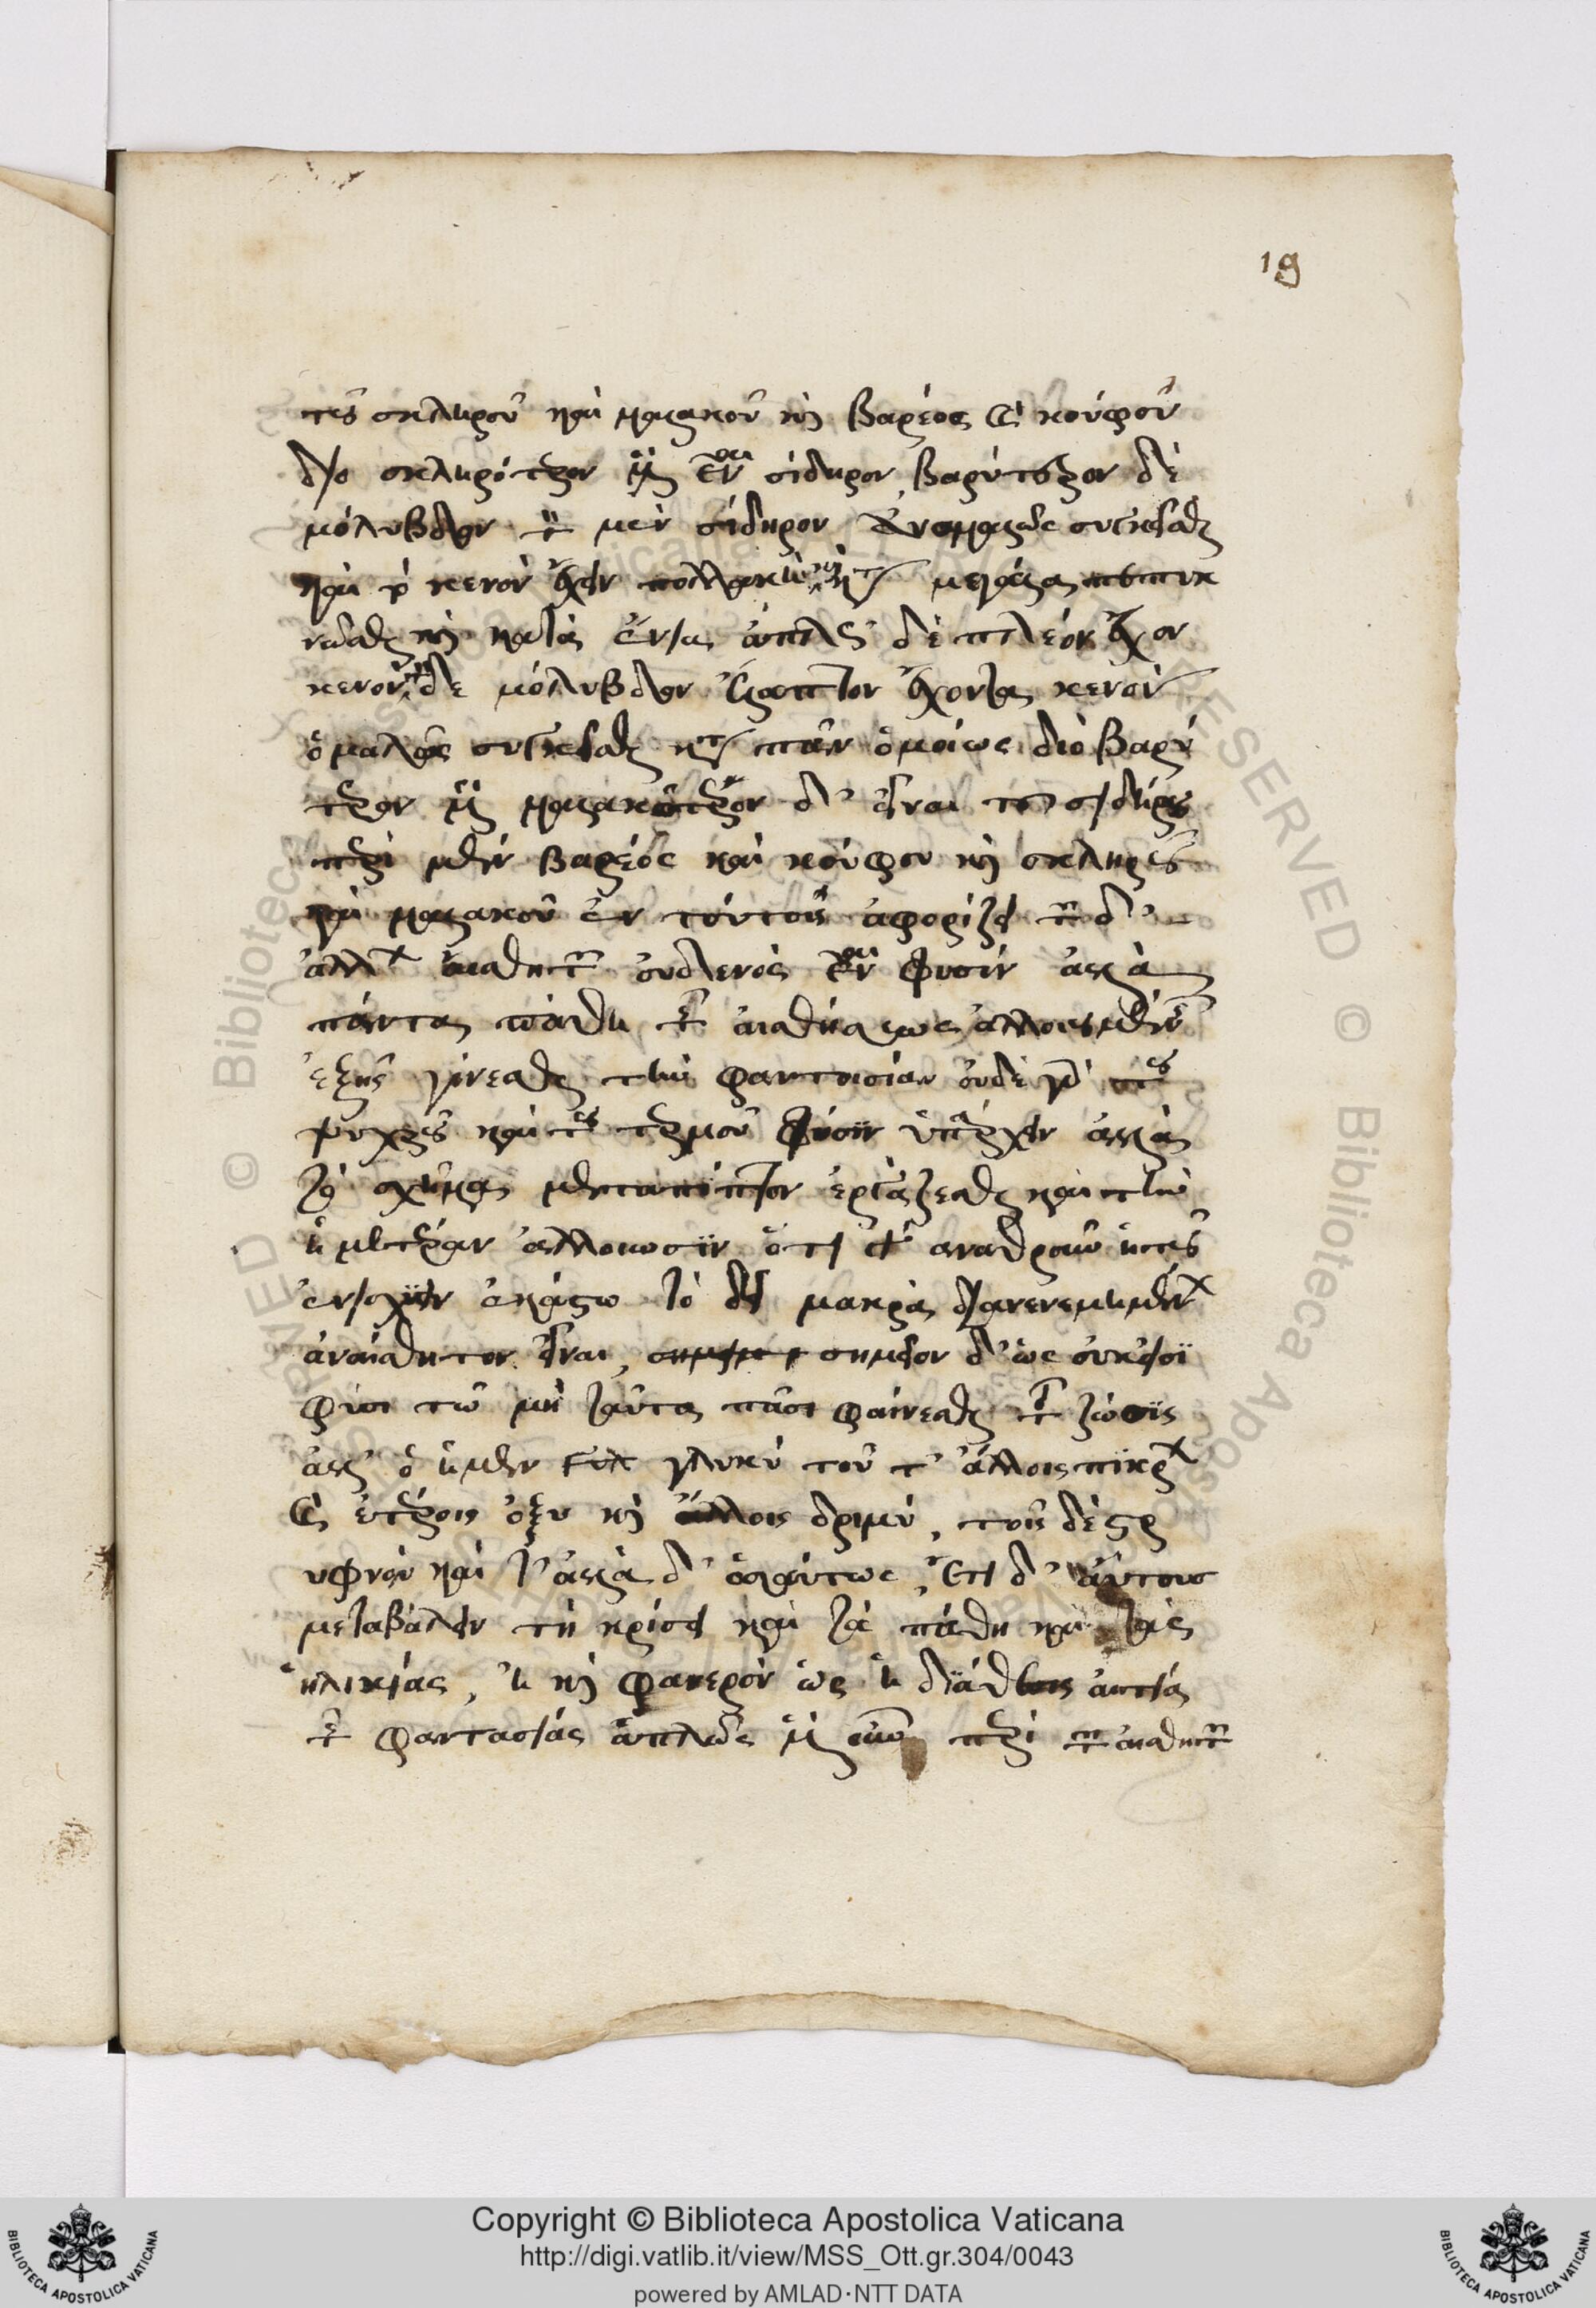 19
τοῦ σκληροῦ καὶ μαλακοῦ καὶ βαρέος καὶ κούφου
διὸ σκληρότερον μὲν εἶναι σίδηρον, βαρύτερον δὲ
μόλυβδον τὸν μὲν σίδηρον ἀνομαλῶς συγκεῖσθαι
καὶ τὸ κενὸν ἔχειν πολλαχῆ καὶ κατὰ μεγάλα πεπυκ
νῶσθαι καὶ κατὰ ἔνια ἁπλῶς δὲ πλέον ἔχον
κενόν τὸν δὲ μόλυβδον ἔλαττον ἔχοντα κενὸν
ὁμαλῶς συγκεῖσθαι κατὰ πᾶν ὁμοίως διὸ βαρύ
τερον μὲν μαλακώτερον δ' εἶναι τοῦ σιδήρου
περὶ μὲν βαρέος καὶ κούφου καὶ σκληροῦ
καὶ μαλακοῦ ἐν τούτοις ἀφορίζει τῶν δ'
ἄλλων αἰσθητῶν οὐδενὸς εἶναι φύσιν ἀλλὰ
πάντα πάθη τῆς αἰσθήσεως ἀλλοιουμένης
ἐξῆς γίνεσθαι τὴν φαντασίαν οὐδὲ γὰρ τοῦ
ψυχροῦ καὶ τοῦ θερμοῦ φύσιν ὑπάρχειν ἀλλὰ
τὸ σχῆμα μεταπίπτον ἐργάζεσθαι καὶ τὴν
ἡμετέραν ἀλλοίωσιν ὅτι
ἐνισχύειν ἑκάστω τὸ δὲ μακρὰ διανενεμημένον
ἀναίσθητον εἶναι, σημεῖον δ' ὡς οὐκ εἰσὶ
φύσει τῶ μὴ ταῦτα πᾶσι φαίνεσθαι τοῖς ζώοις
ἀλλ' ὃ ἡμῖν γλυκύ τοῦτ' ἄλλοις πικρὸν
καὶ ἑτέροις ὀξὺ καὶ ἄλλοις δριμύ, τοῖς δὲ στρ
υφνὸν καὶ τ' ἀλλὰ δ' ὡσαύτως, ἔτι δ' αὐτοὺς
μεταβάλειν τῆ κρίσει καὶ τὰ πάθη καὶ τὰς
ἡλικίας, ἧ καὶ φανερὸν ὡς ἡ διάθεσις αἰτία
τῆς φαντασίας ἁπλῶς μὲν οὖν περὶ τῶν αἰσθητῶν
Copyright © Biblioteca Apostolica Vaticana
http://digi.vatlib.it/view/MSS_Ott.gr.304/0043
powered by AMLAD·NTT DATA